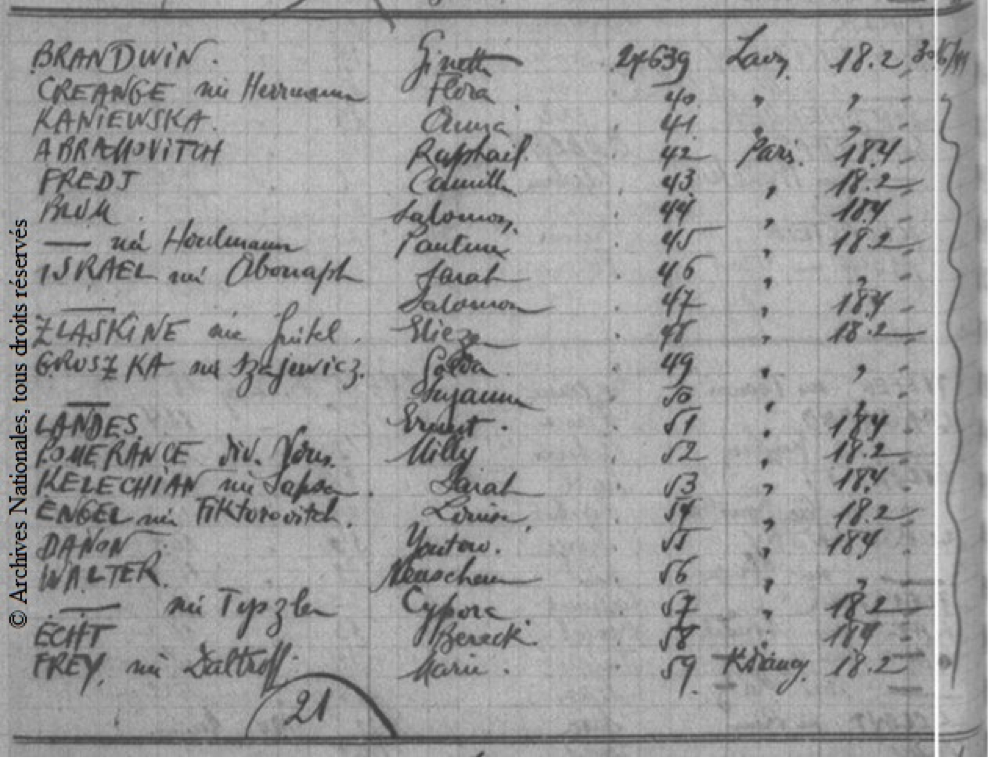 BRANDWIN. Ginette 24639 Lavy 18.2 30/6/44
CREANGE née Herrmann Flora 40 " "
KANIEWSKA. Anna 41 " "
ABRAMOVITCH Raphael 42 Paris. 18.4
FREDJ Camille 43 " 18.2
BLUM Salomon 44 " 18.4
— née Hordmann Pauline 45 " 18.2
ISRAEL née Abouaph Sarah 46 " "
— Salomon 47 " 18.4
ZLASKINE née Eliezer 48 " 18.2
GRUSZKA née Szajewicz. Golda 49 " "
— Suzanne 50 "
LANDES Ernest. 51 " 18.4
POMERANCE div. Milly 52 " 18.2
KELECHIAN née Sarah 53 " 18.4
ENGEL née Fiktorovitch. Louise 54 " 18.2
DANON Yontow. 55 " 18.4
WALTER. 56 " "
— née Tyszler Cypora 57 " 18.2
ECHT Bereck 58 18.4
FREY, née Daltroff Marie. 59. 18.2
21
© Archives Nationales, tous droits réservés